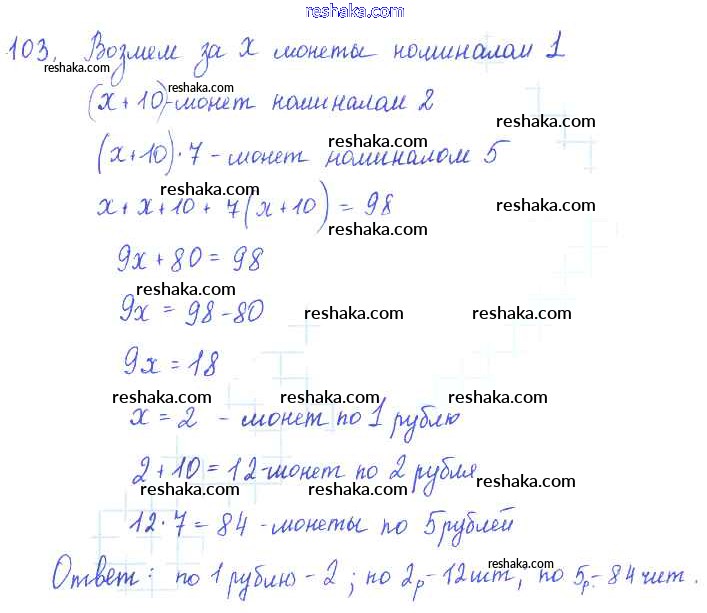 reshaka.com
103. Возмем за x монеты номиналам 1
reshaka.com
reshaka.com
(x+10)-монет номиналам 2
reshaka.com
(x+10)·7 - монет номиналом 5
reshaka.com
reshaka.com
x+x+10+7(x+10)=98
reshaka.com
9x+80=98
reshaka.com
9x=98-80
reshaka.com
reshaka.com
9x=18
reshaka.com
reshaka.com
reshaka.com
x=2 - монет по 1 рублю
2+10=12-монет по 2 рубля
reshaka.com
reshaka.com
reshaka.com
12·7=84 - монеты по 5 рублей
reshaka.com
Ответ: по 1 рублю-2; по 2р-12шт, по 5р-84шт.